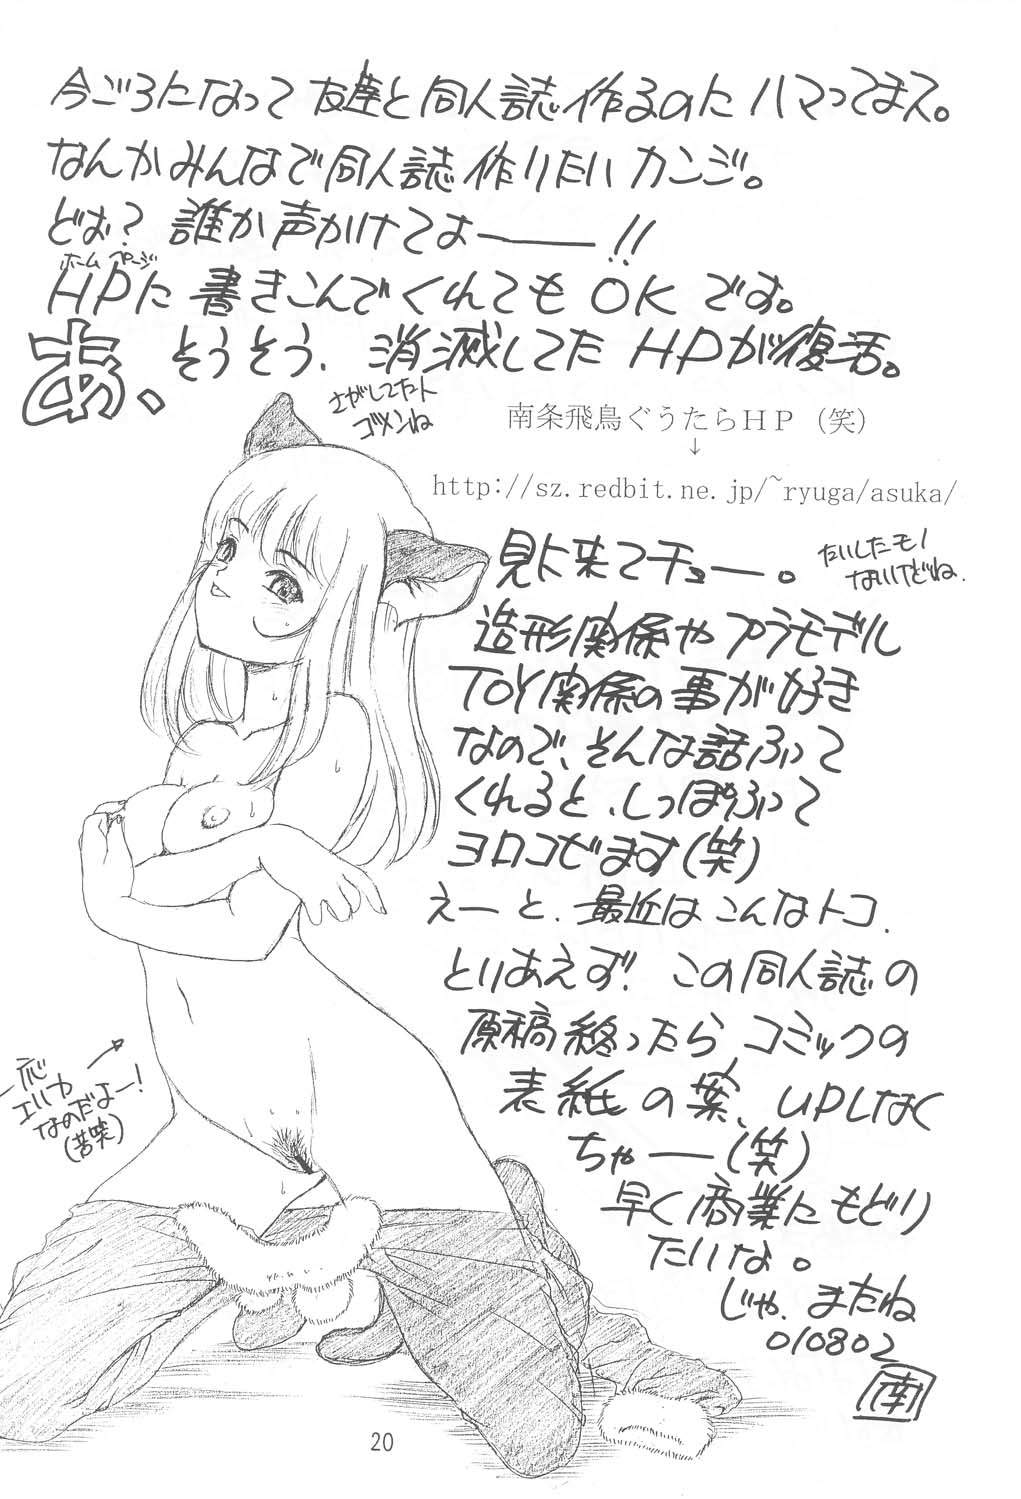 今ごろになって友達と同人誌作るのにハマってます。
なんかみんなで同人誌作りたいカンジ。
どお？誰か声かけてよーー!!
ホームページ
HPに書きこんでくれてもOKです。
あ、そうそう、消滅してたHPが復活。
さがしてた人
ゴメンね
南条飛鳥ぐうたらHP（笑）
↓
http://sz.redbit.ne.jp/~ryuga/asuka/
見に来てチョー。
たいしたモノ
ないけどね.
造形関係やプラモデル
TOY関係の事が好き
なので、そんな話ふって
くれると、しっぽふって
ヨロコびます(笑)
えーと、最近はこんなトコ.
とりあえず!この同人誌の
原稿終ったら、コミックの
表紙の案、UPしなく
ちゃー(笑)
早く商業にもどり
たいな。
じゃ、またね
010802
南
一応
エリカ
なのだよー!
(苦笑)
20